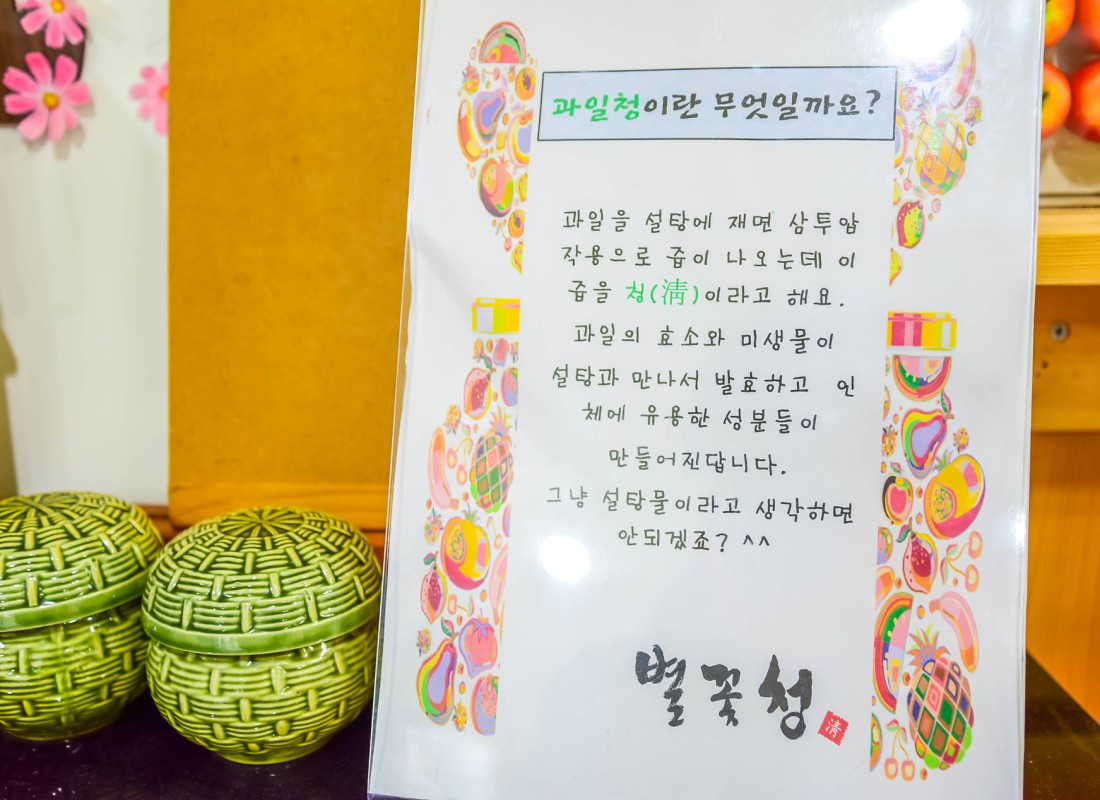 과일청이란 무엇일까요?
과일을 설탕에 재면 삼투압
작용으로 즙이 나오는데 이
즙을 청(淸)이라고 해요.
과일의 효소와 미생물이
설탕과 만나서 발효하고 인
체에 유용한 성분들이
만들어진답니다.
그냥 설탕물이라고 생각하면
안되겠죠? ^^
별꽃청
淸